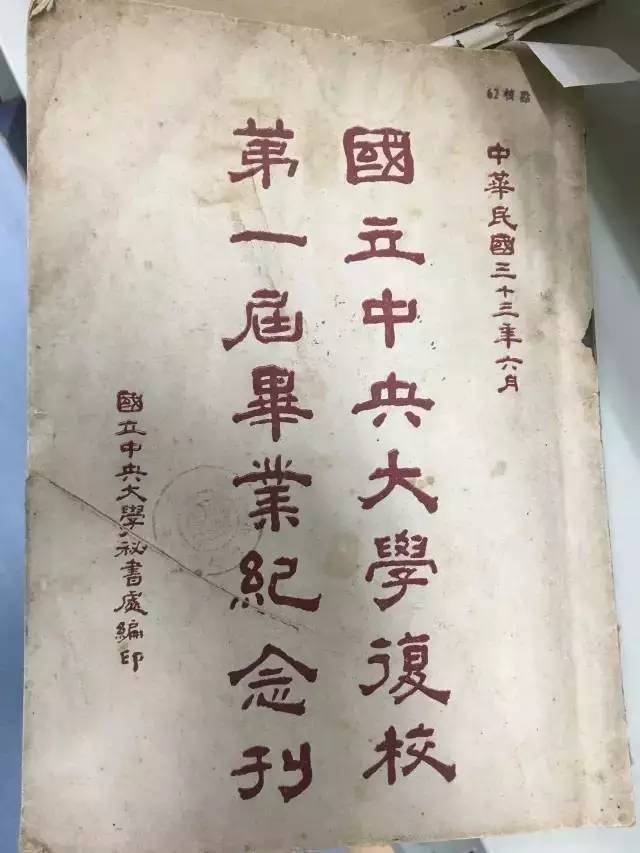 中華民國三十三年六月
國立中央大學復校
第一屆畢業紀念刊
國立中央大學秘書處編印